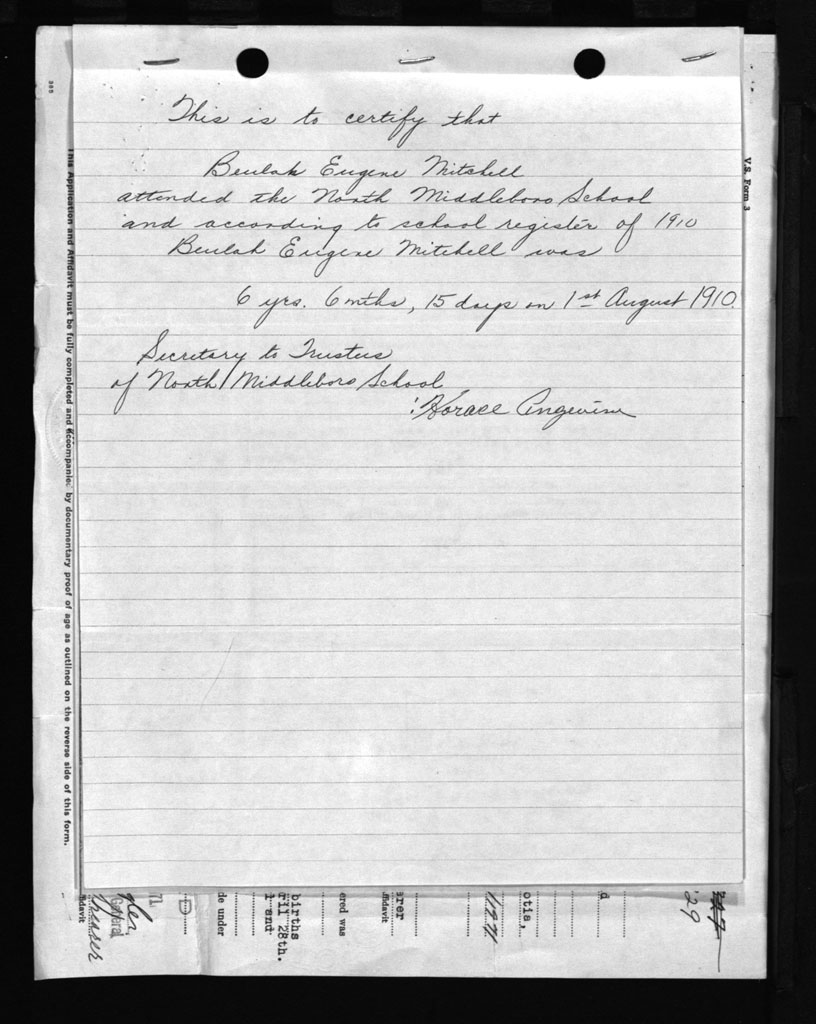 This is to certify that
Beulah Eugene Mitchell
attended the North Middleboro School
and according to school register of 1910
Beulah Eugene Mitchell was
6 yrs. 6 mths, 15 days on 1st August 1910.
Secretary to Trustees
of North Middleboro School
: Horace Angevine
This Application and Affidavit must be fully completed and accompanied by documentary proof of age as outlined on the reverse side of this form.
V.S. Form 3
'29
otia,
arer
ffidavit
ered was
births
ril 28th.
l and
de under
D
71
General
fidavit